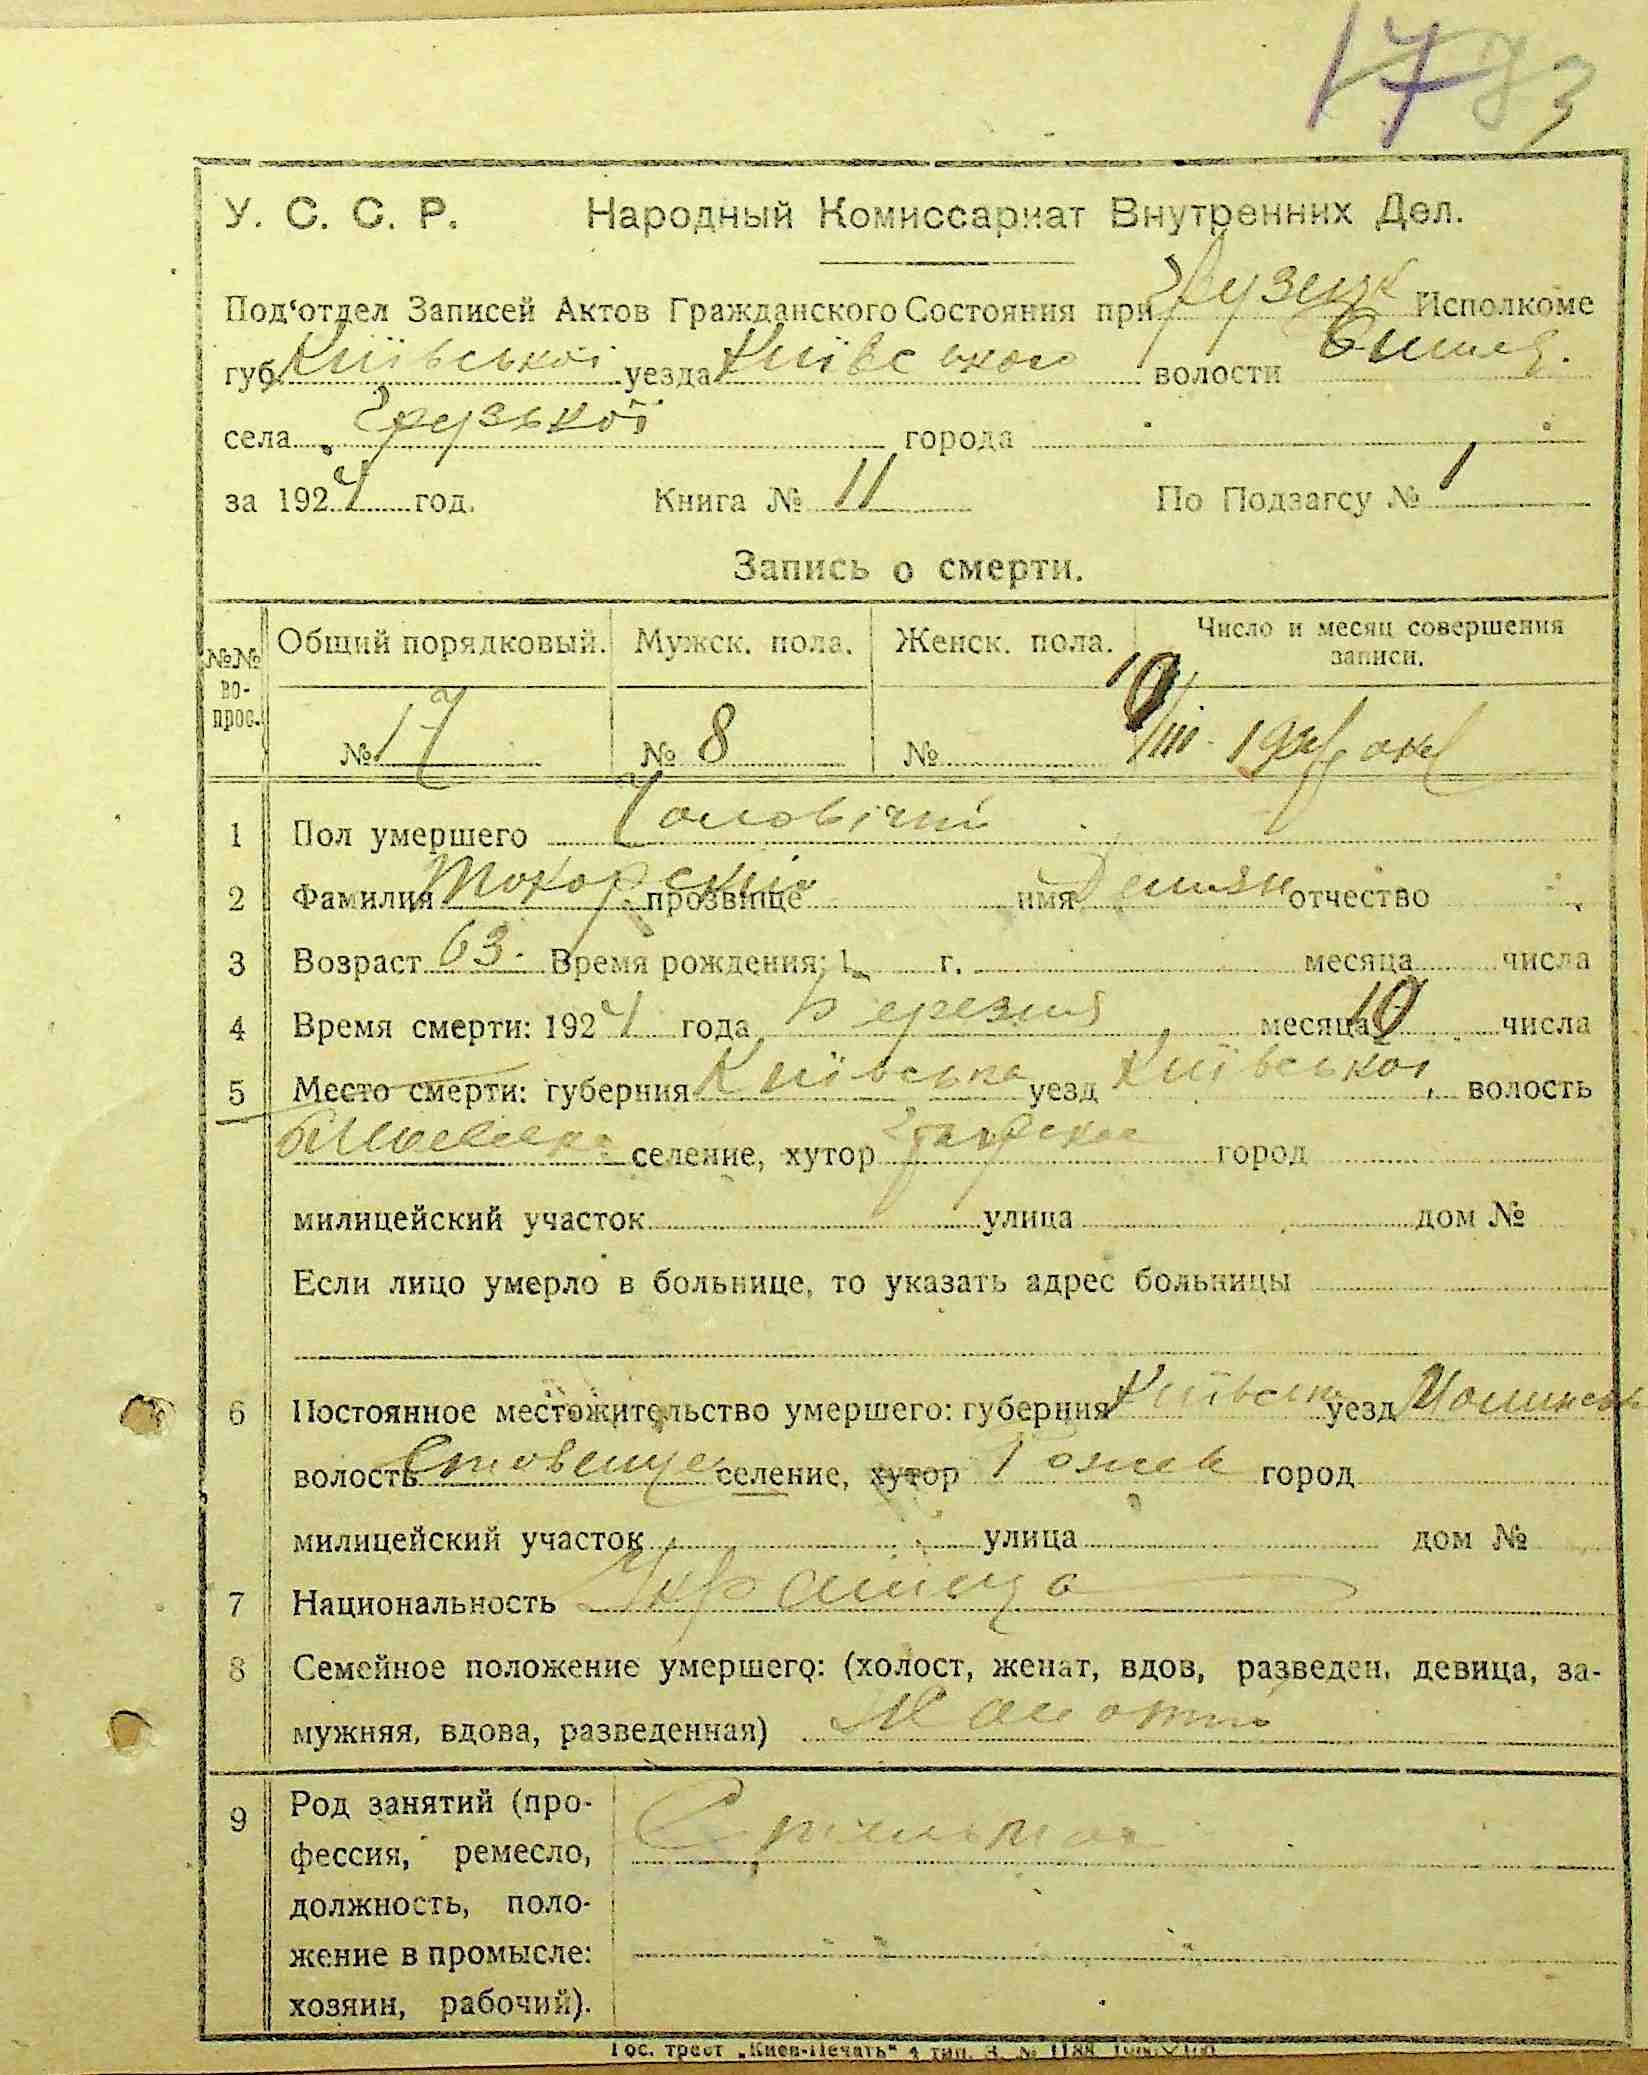 17
У. С. С. Р. Народный Комиссариат Внутренних Дел.
Под‘отдел Записей Актов Гражданского Состояния при Грузськ Исполкоме
губ. Київської уезда Київського волости
села Грузької города
за 1924 год. Книга № 11 По Подзагсу № 1
Запись о смерти.
№№ во- прос. Общий порядковый. Мужск. пола. Женск. пола. Число и месяц совершения записи.
№ 17 № 8 № 10/III
1 Пол умершего Чоловічий
2 Фамилия Токорский прозвище имя Демьян отчество
3 Возраст 63. Время рождения: 1 г. месяца числа
4 Время смерти: 1924 года Березня месяца 10 числа
5 Место смерти: губерния Київська уезд Київської волость
селение, хутор город
милицейский участок улица дом №
Если лицо умерло в больнице, то указать адрес больницы
6 Постоянное местожительство умершего: губерния Київськ уезд
волость селение, хутор город
милицейский участок улица дом №
7 Национальность Українець
8 Семейное положение умершего: (холост, женат, вдов, разведен, девица, за-
мужняя, вдова, разведенная) Жонатий
9 Род занятий (про-
фессия, ремесло,
должность, поло-
жение в промысле:
хозяин, рабочий).
Гос. трест „Киев-Печать“ 4 тип. З. № 1188